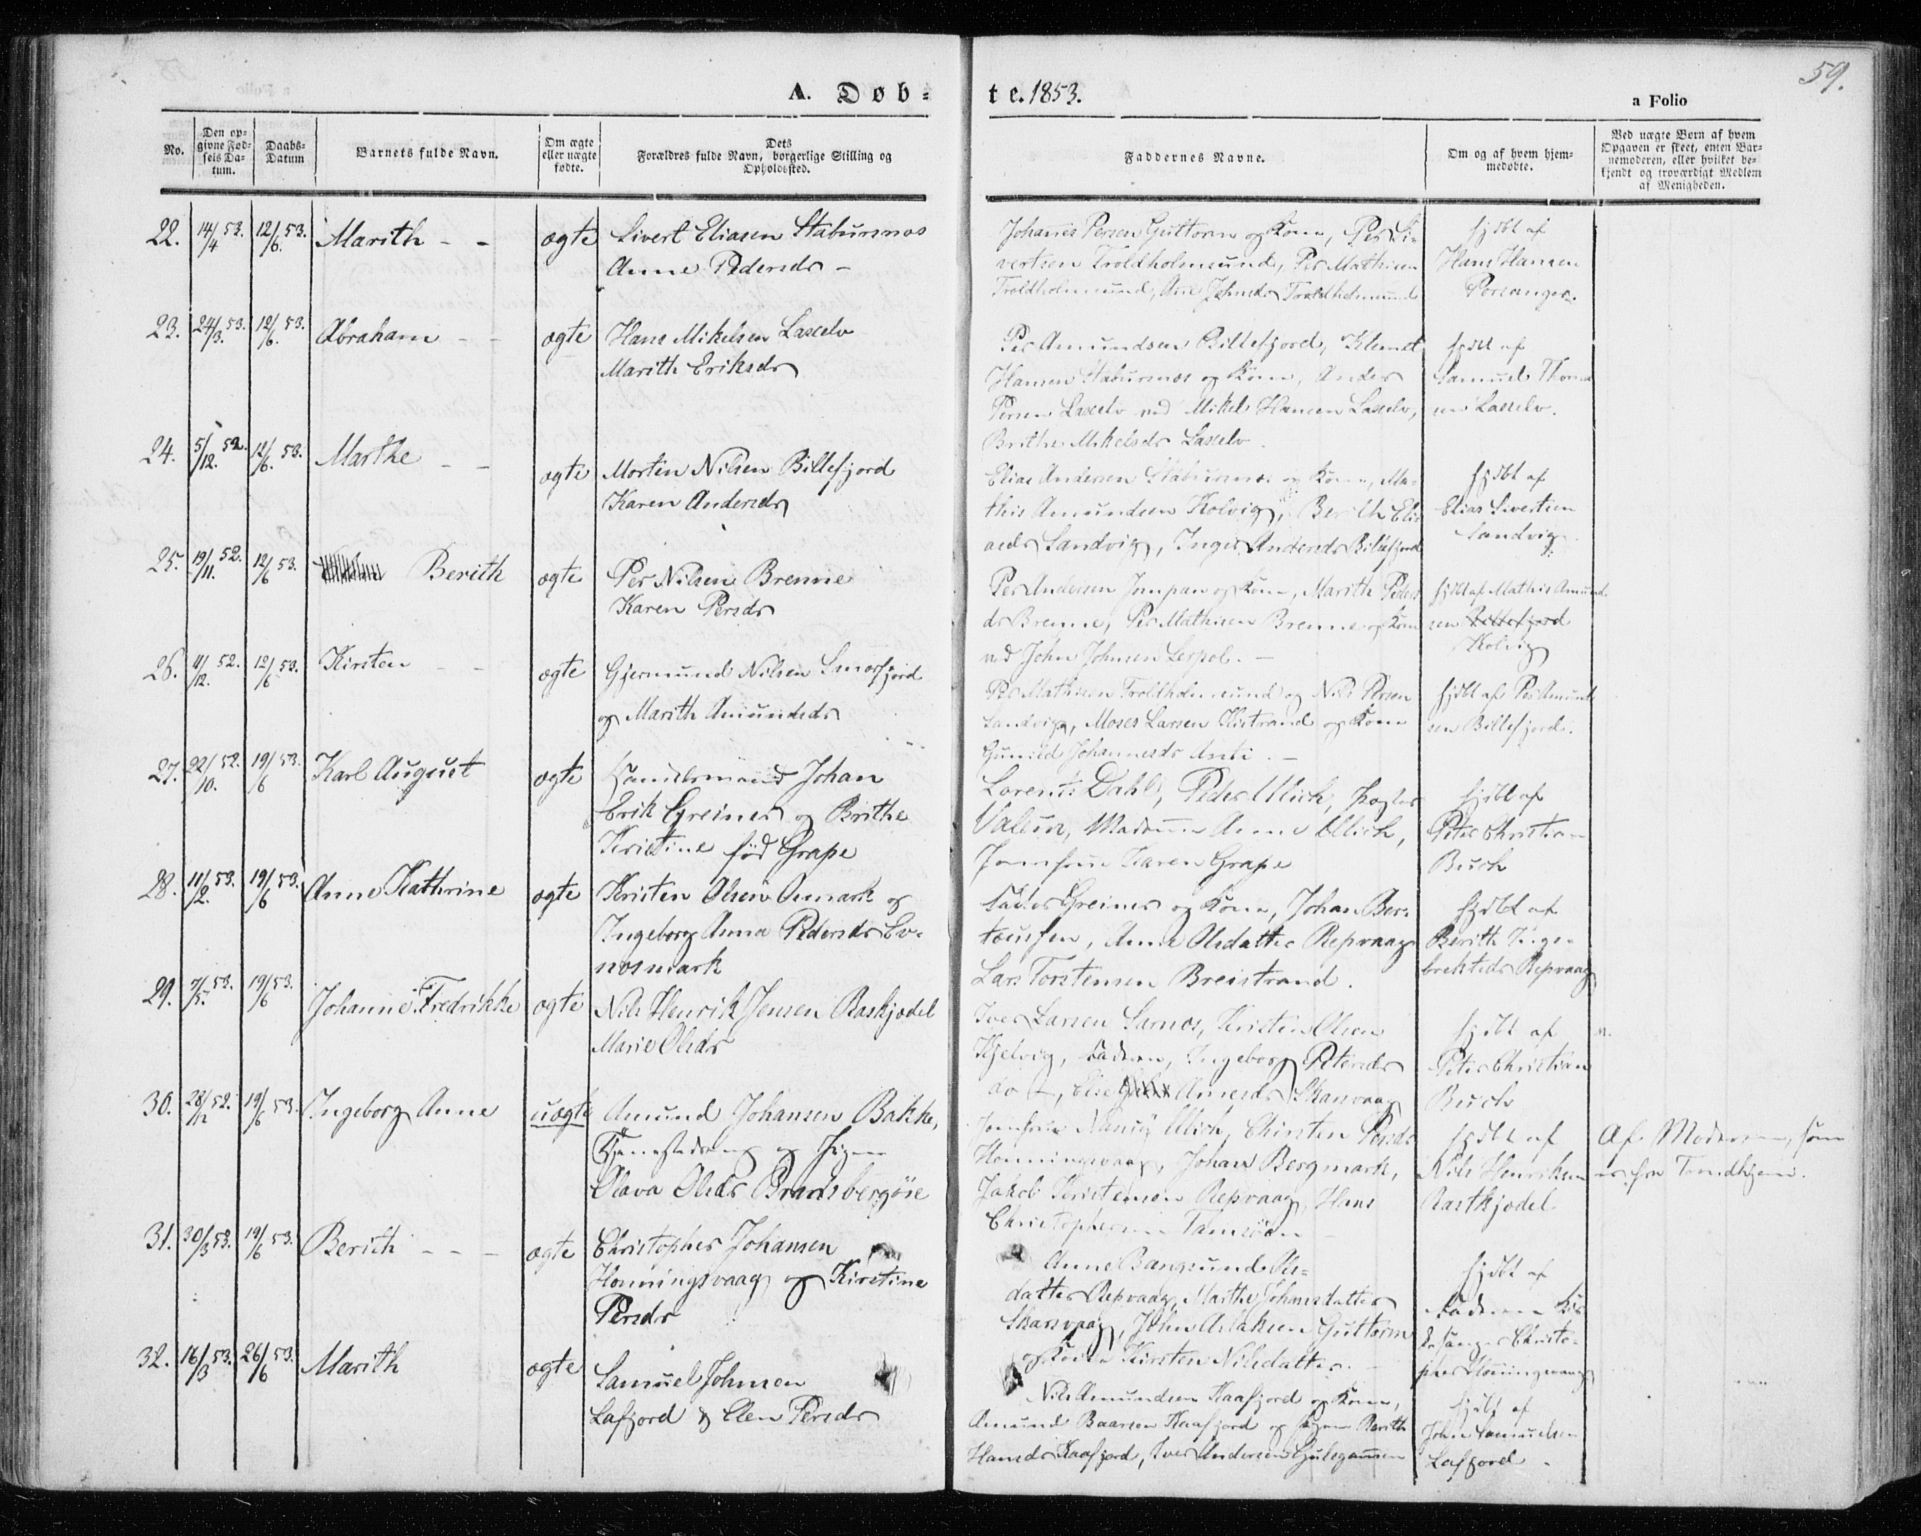 59.
A. Døb- te. 1853.
a Folio
No.
Den op-
givne Fød-
sels Da-
tum.
Daabs-
Datum
Barnets fulde Navn.
Om ægte
eller uægte
fødte.
Dets
Forældres fulde Navn, borgerlige Stilling og
Opholdssted.
Faddernes Navne.
Om og af hvem hjem-
medøbte.
Ved uægte Børn af hvem
Opgaven er skeet, enten Bar-
nemoderen, eller hvilket be-
kjendt og troværdigt Medlem
af Menigheden.
22. 14/4 53. 12/6 53. Marith - - ægte
Sivert Eliasen Stabursnæs
Anne Pedersdr -
Johanes Persen Guttorm og Kone, Per Si-
vertsen Troldholmsund, Per Mathisen
Troldholmsund, Ane Johnsdr Troldholmsund
hjdbt af
Hans Hansen
Porsanger.
23. 24/3 53. 12/6 53. Abraham - - ægte
Hans Mikelsen Laxelv
Marith Eriksdr
Per Amundsen Billefjord, Klemet
Hansen Stabursnæs og Kone, Anders
Persen Laxelv ved Mikel Hansen Laxelv,
Brithe Mikelsdr Laxelv.
hjdbt af
Samuel Thom
sen Laxelv.
24. 5/12 52. 12/6 53. Marthe - - ægte
Morten Nilsen Billefjord
Karen Andersdr
Elias Andersen Stabursnæs og Kone, Ma-
this Amundsen Kolvig, Berith Elia
asdr Sandvig, Inger Andersdr Billefjord
hjdbt af
Elias Sivertsen
Sandvig.
25. 19/11 52. 12/6 53. Berith ægte
Per Nilsen Brenne
Karen Persdr
Per Andersen Jompan og Kone, Marith Peders
dr Brenne, Per Mathisen Brenne og Kone
ved John Johnsen Lerpol. -
hjdbt af Mathis Amund
sen Billefjord
Kolvig
26. 11/12 52. 12/6 53. Kirsten - - ægte
Gjermund Nilsen Smørfjord
og Marith Amundsdr
Per Mathisen Troldholmsund og Nils Persen
Sandvig, Moses Larsen Kistrand og Kone
Gunild Johannesdr Anti. -
hjdbt af Per Amund
sen Billefjord.
27. 22/10 52. 19/6 53. Karl August ægte
Handelsmand Johan
Erik Greiner og Brithe
Kristine fød Grape
Lorents Dahl, Peder Ulich,
Madame Anne Ulich,
Jomfrue Karen Grape
hjdbt af
Peter Christian
Buch
28. 11/2 53. 19/6 53. Anne Kathrine ægte
Kristen Olsen Anmark og
Ingeborg Anna Pedersdr Sv-
nosmark
Greiner og Kone, Johan Ber-
tausen, Anne Olsdatter Repvaag
Lars Torstensen Breistrand.
hjdbt af
Berith Inge-
brektsdr Repvaag
29. 7/5 53. 19/6 53. Johanne Fredrikke ægte
Nils Henrik Jensen Baskjødel
Marie Olsdr
Iver Larsen Sarnæs, Kristen Olsen
Kjelvig, Faderen, Ingeborg Petersdr
do -, Else Amesdr Skarsvaag
hjdbt af
Peter Christian
Buch
30. 28/12 52. 19/6 53. Ingeborg Anne uægte
Amund Johansen Bakke,
Tjenestedreng og Pigen
Olava Olsdr Brandsbergøie
Jomfrue Nancy Ulich, Chirsten Persdr
Honningsvaag, Johan Bergmark,
Jakob Kristensen Repvaag, Hans
Christophersen Tamsøen
hjdbt af
Nils Henriksen
Rastkjødel
Af Moderen, som
er fra Trondhjem.
31. 30/3 53. 19/6 53. Berith - - - ægte
Christopher Johansen
Honningsvaag og Kirstine
Persdr
Anne Bangsund Ols-
datter Repvaag, Marthe Johansdatter
Skarsvaag, John Aslaksen Guttorm
og Kone Kirsten Nilsdatter. -
hjdbt af
Faderen Kir
kesanger Christo-
pher Honningsvaag
32. 16/3 53. 26/6 53. Marith ægte
Samuel Johnsen
Lafjord & Elen Persdr
Nils Amundsen Kaafjord og Kone,
Amund Baarsen Kaafjord og Pigen Berith
Hansdr Kaafjord, Iver Andersen Gjulegamsen
hjdbt af
John Samuelsen
Lafjord -